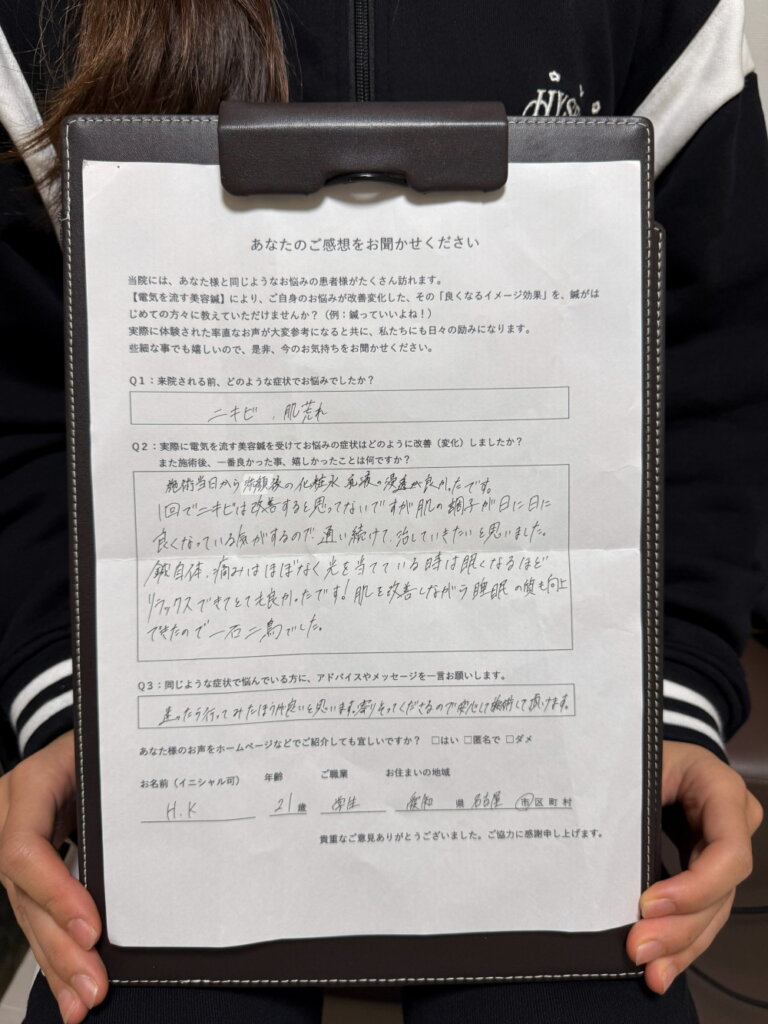 HYS
あなたのご感想をお聞かせください
当院には、あなた様と同じようなお悩みの患者様がたくさん訪れます。
【電気を流す美容鍼】により、ご自身のお悩みが改善変化した、その「良くなるイメージ効果」を、鍼がは
じめての方々に教えていただけませんか？（例：鍼っていいよね！）
実際に体験された率直なお声が大変参考になると共に、私たちにも日々の励みになります。
些細な事でも嬉しいので、是非、今のお気持ちをお聞かせください。
Q1：来院される前、どのような症状でお悩みでしたか？
ニキビ、肌荒れ
Q2：実際に電気を流す美容鍼を受けてお悩みの症状はどのように改善（変化）しましたか？
また施術後、一番良かった事、嬉しかったことは何ですか？
施術当日から洗顔後の化粧水乳液の浸透が良かったです。
1回でニキビは改善すると思ってないですが肌の調子が日に日に
良くなっている気がするので、通い続けて、治していきたいと思いました。
鍼自体、痛みはほぼなく光を当てている時は眠くなるほど
リラックスできてとても良かったです！肌を改善しながら睡眠の質も向上
できたので一石二鳥でした。
Q3：同じような症状で悩んでいる方に、アドバイスやメッセージを一言お願いします。
迷ったら行ってみたほうが良いと思います。寄りそってくださるので安心して施術して頂けます。
あなた様のお声をホームページなどでご紹介しても宜しいですか？ □はい □匿名で □ダメ
お名前（イニシャル可） 年齢 ご職業 お住まいの地域
H.K 21歳 学生 愛知県 名古屋市区町村
貴重なご意見ありがとうございました。ご協力に感謝申し上げます。